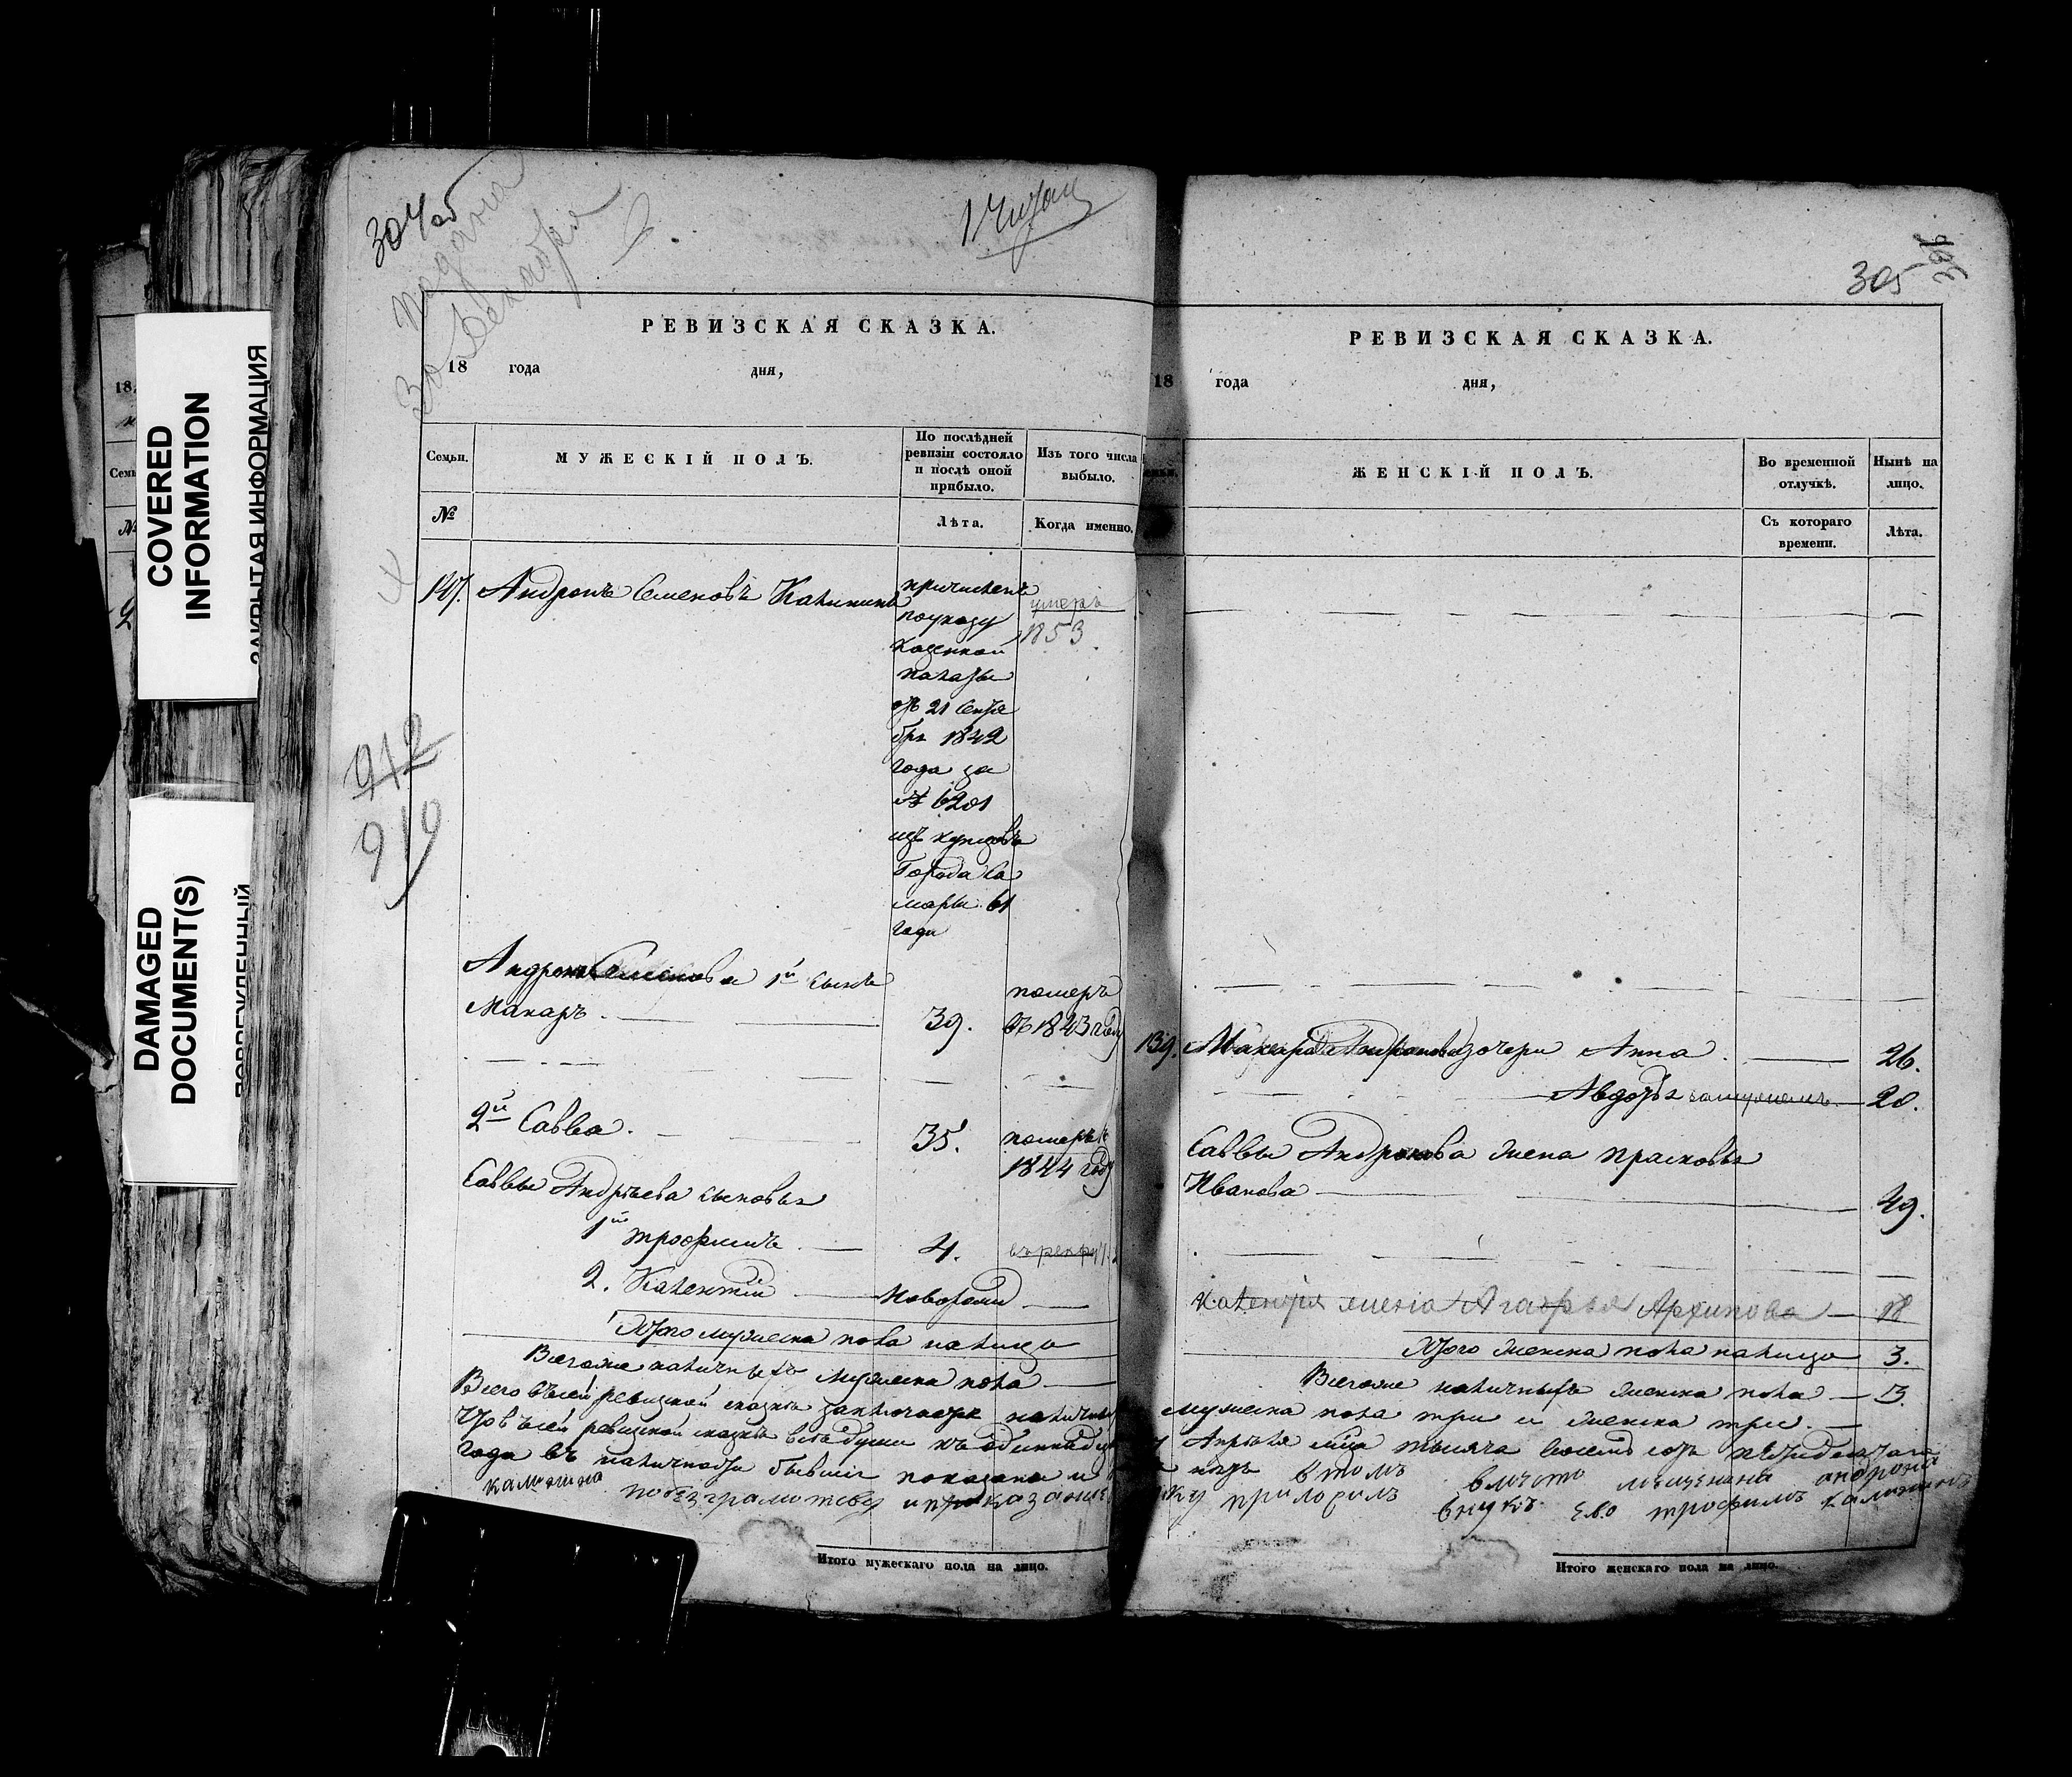 304 об
подана
30 декабря
1 читан
305
306
COVERED
INFORMATION
ЗАКРЫТАЯ ИНФОРМАЦИЯ
DAMAGED
DOCUMENT(S)
ПОВРЕЖДЕННЫЙ
РЕВИЗСКАЯ СКАЗКА.
18 года дня,
Семьи. МУЖЕСКІЙ ПОЛЪ. По послѣдней ревизіи состояло и послѣ оной прибыло. Изъ того числа выбыло.
№ Лѣта. Когда именно.
912
919
147. Андронъ Семеновъ Калининъ причисленъ умеръ
по указу 1853.
казенной
палаты
отъ 21 Сентя
бря 1842
года за
№ 6201
изъ купцовъ
Города Са
мары 61
года
Андрона Семенова 1й сынъ
Макаръ. 39. померъ въ 1843 году
2й Савва. 35. померъ в 1844 году
Саввы Андрѣева сыновья
1й трофимъ 4.
2. Калентій новорожд
Итого мужеска пола налицо
Всего же наличныхъ мужеска пола
РЕВИЗСКАЯ СКАЗКА.
18 года дня,
ЖЕНСКІЙ ПОЛЪ. Во временной отлучкѣ. Нынѣ на лицо.
Съ котораго времени. Лѣта.
139. Макара Андронова дочери Анна. 26.
Авдотья замужемъ 20.
Саввы Андронова жена прасковья
Иванова 49.
Калентія жена Агафья Архипова 18
Итого женска пола налицо 3.
Всего же наличныхъ женска пола 3.
Всего въ сей ревизской сказкѣ заключается наличныхъ мужеска пола три и женска три.
Что въ сей ревизской сказкѣ всѣ души къ Апрѣля мца тысяча восемь сотъ пятидесятаго
года въ наличности бывшіе показаны и въ томъ вместо мещенина андрона
калинина по безграмотству и приказанию руку приложилъ внукъ ево трофимъ калининъ
Итого мужескаго пола на лицо.
Итого женскаго пола на лицо.